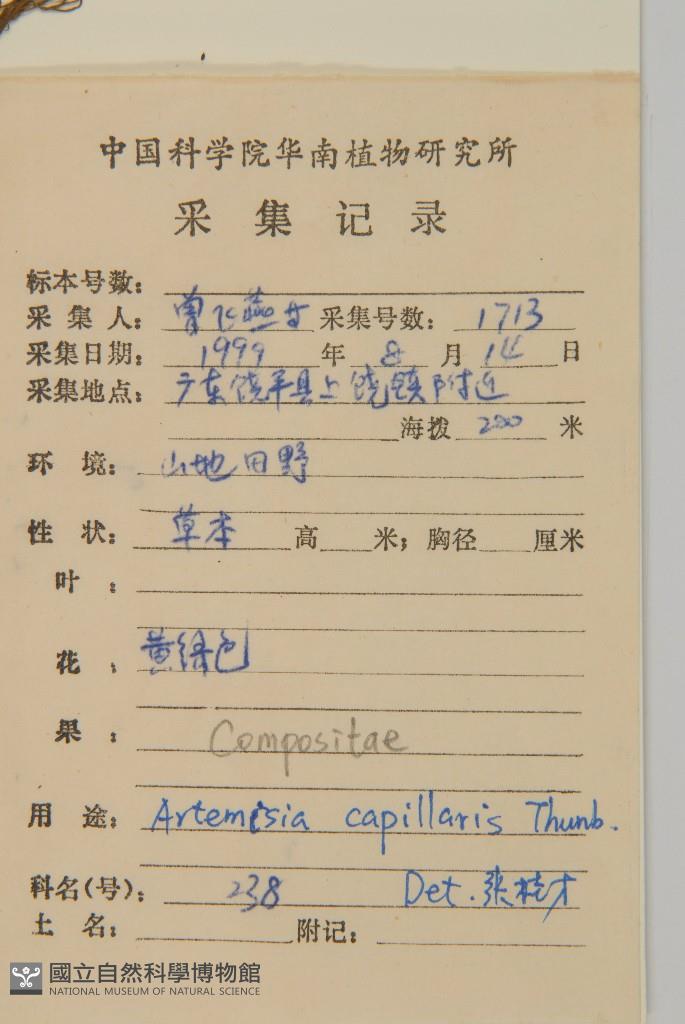 中国科学院华南植物研究所
采集记录
标本号数：
采集人：曾飞燕 采集号数：1713
采集日期：1999年8月14日
采集地点：广东饶平县上饶镇附近
海拨 200 米
环境：山地田野
性状：草本 高 米；胸径 厘米
叶：
花：黄绿色
果：
Compositae
用途：Artemisia capillaris Thunb.
科名(号)：238 Det. 张桂才
土名： 附记：
國立自然科學博物館
NATIONAL MUSEUM OF NATURAL SCIENCE